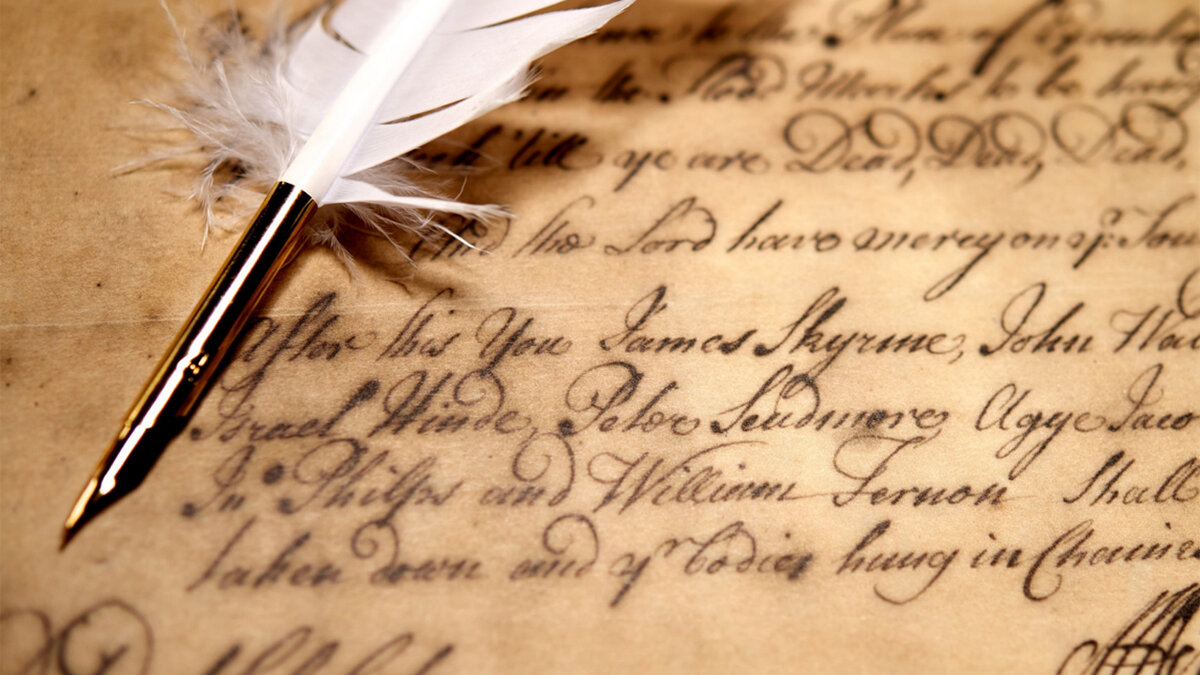 to the Place of Execution
in the Flood Marks to be hang
Neck 'till ye are Dead, Dead, Dead,
And the Lord have mercy on yr. Soul
After this You James Skyrme, John Wal
Israel Hinde, Peter Scudmore Agge Jaco
Jno. Philps and William Fernon Shall
taken down and yr bodies hung in Chaines